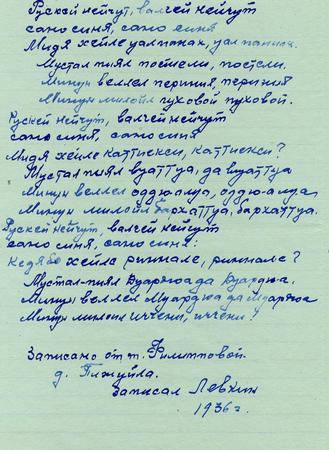 Рускей нейчут, валчей нейчут
сано синя, сано синя
Мидя хейле уалпанак, уал панна.
Мустал пиял постели, постели.
Минун веллел периня, периня
Минун милойл пуховой пуховой.
Рускей нейчут, валчей нейчут
сано синя, сано синя
Мидя хейле каттиекси, каттиекси?
Мустал пиял вуаттуа, да вуаттуа
Минун веллел оддюалуа, оддю-алуа,
Минун милойл бархаттуа, бархаттуа.
Рускей нейчут, валчей нейчут
сано синя, сано синя:
Кедябо хейле риннале, риннале?
Мустал-пиял Дуарюада Дуардюа.
Минун веллел Муардюа да Муардюа
Минун милойл иччени, иччени!
Записано от т. Филипповой.
д. Пяжуйла.
Записал Левкин
1936 г.